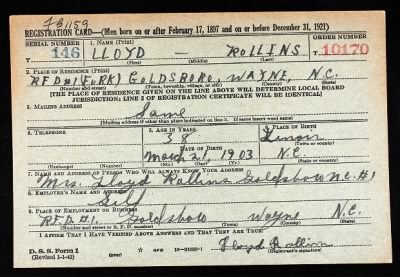 FB1159
REGISTRATION CARD—(Men born on or after February 17, 1897 and on or before December 31, 1921)
SERIAL NUMBER 1. NAME (Print) ORDER NUMBER
T 146 LLOYD — ROLLINS T 10170
(First) (Middle) (Last)
2. PLACE OF RESIDENCE (Print)
RFD#1 (FORK) GOLDSBORO, WAYNE, N.C.
(Number and street) (Town, township, village, or city) (County) (State)
[THE PLACE OF RESIDENCE GIVEN ON THE LINE ABOVE WILL DETERMINE LOCAL BOARD
JURISDICTION; LINE 2 OF REGISTRATION CERTIFICATE WILL BE IDENTICAL]
3. MAILING ADDRESS
Same
[Mailing address if other than place indicated on line 2. If same insert word same]
4. TELEPHONE 5. AGE IN YEARS 6. PLACE OF BIRTH
38 Lenoir
DATE OF BIRTH (Town or county)
March 21, 1903 N.C.
(Exchange) (Number) (Mo.) (Day) (Yr.) (State or country)
7. NAME AND ADDRESS OF PERSON WHO WILL ALWAYS KNOW YOUR ADDRESS
Mrs. Lloyd Rollins Goldsboro N.C. #1
8. EMPLOYER'S NAME AND ADDRESS
Self
9. PLACE OF EMPLOYMENT OR BUSINESS
R.F.D. #1. Goldsboro Wayne N.C.
(Number and street or R. F. D. number) (Town) (County) (State)
I AFFIRM THAT I HAVE VERIFIED ABOVE ANSWERS AND THAT THEY ARE TRUE.
D. S. S. Form 1
(Revised 1-1-42) (over) GPO 16—21630-1 Lloyd Rollins